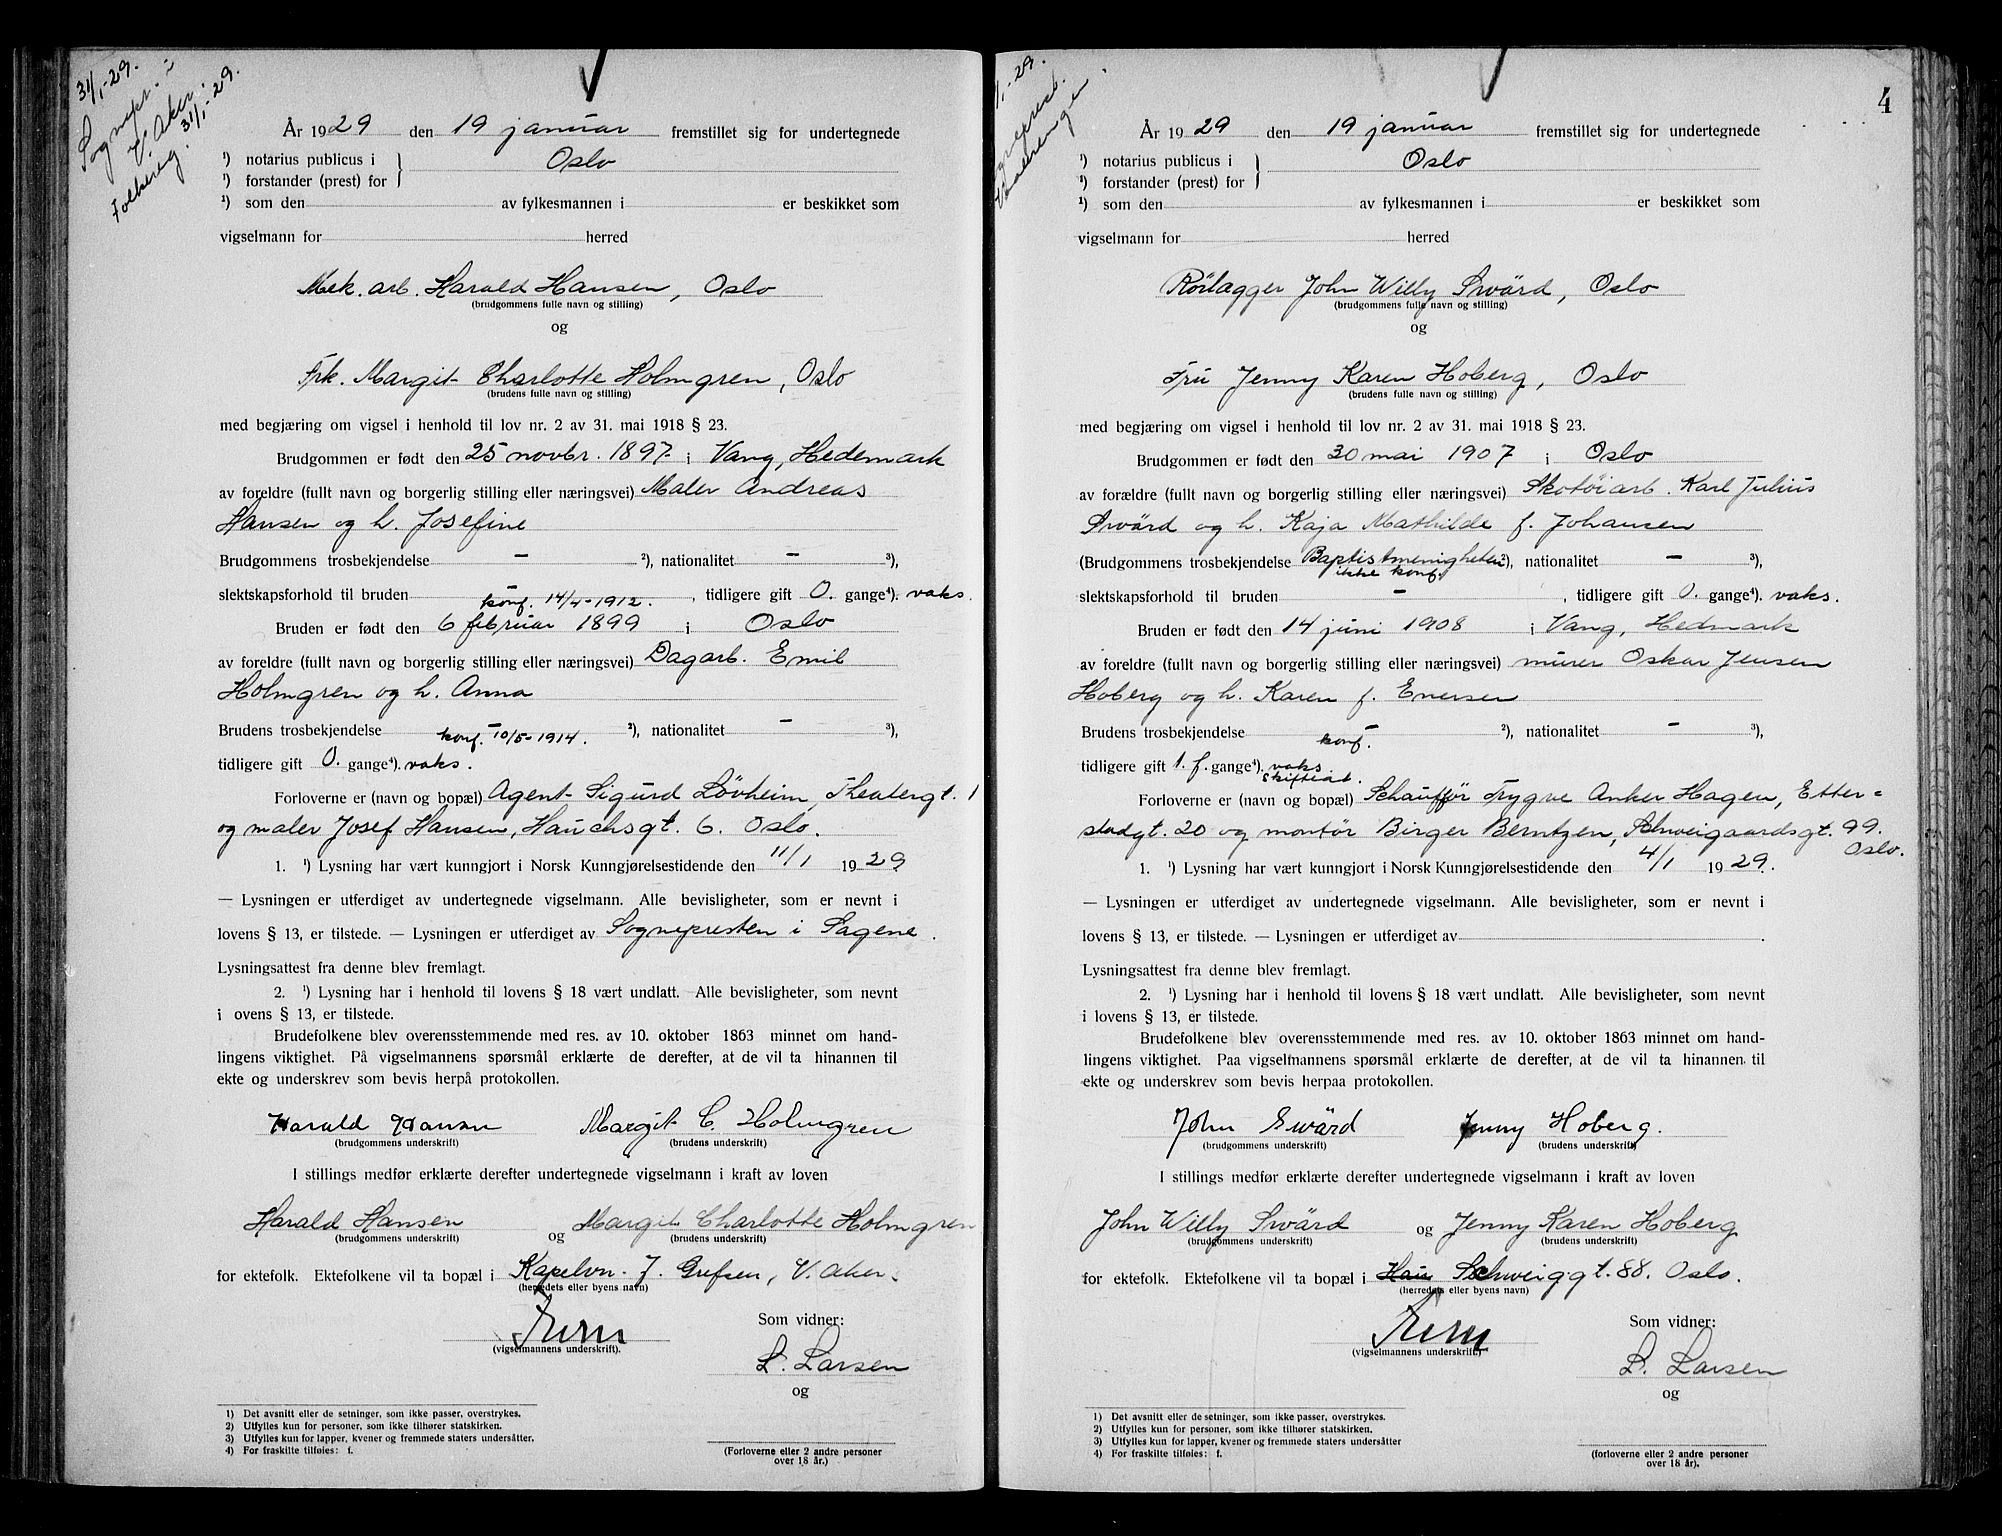 31/1-29.
Sognepr. i
V. Aker.
Folkereg. 31/1-29.
År 1929 den 19 januar fremstillet sig for undertegnede
¹) notarius publicus i } Oslo
¹) forstander (prest) for
¹) som den av fylkesmannen i er beskikket som
vigselmann for herred
Mek. arb. Harald Hansen, Oslo
(brudgommens fulle navn og stilling)
og
Frk. Margit Charlotte Holmgren, Oslo
(brudens fulle navn og stilling)
med begjæring om vigsel i henhold til lov nr. 2 av 31. mai 1918 § 23.
Brudgommen er født den 25 novbr. 1897 i Vang, Hedemark
av foreldre (fullt navn og borgerlig stilling eller næringsvei) Maler Andreas
Hansen og h. Josefine
Brudgommens trosbekjendelse – ²), nationalitet – ³),
slektskapsforhold til bruden konf. 14/4-1912. , tidligere gift 0. gange⁴). vaks.
Bruden er født den 6 februar 1899 i Oslo
av foreldre (fullt navn og borgerlig stilling eller næringsvei) Dagarb. Emil
Holmgren og h. Anna
Brudens trosbekjendelse – konf. 10/5-1914. ²), nationalitet – ³),
tidligere gift 0. gange⁴). vaks.
Forloverne er (navn og bopæl) Agent Sigurd Lövheim, Theatergt. 1
og maler Josef Hansen, Hauchsgt. 6. Oslo.
1. ¹) Lysning har vært kunngjort i Norsk Kunngjørelsestidende den 11/1 1929
— Lysningen er utferdiget av undertegnede vigselmann. Alle bevisligheter, som er nevnt i
lovens § 13, er tilstede. — Lysningen er utferdiget av Sognepresten i Sagene.
Lysningsattest fra denne blev fremlagt.
2. ¹) Lysning har i henhold til lovens § 18 vært undlatt. Alle bevisligheter, som nevnt
i ovens § 13, er tilstede.
Brudefolkene blev overensstemmende med res. av 10. oktober 1863 minnet om hand-
lingens viktighet. På vigselmannens spørsmål erklærte de derefter, at de vil ta hinannen til
ekte og underskrev som bevis herpå protokollen.
Harald Hansen Margit C. Holmgren
(brudgommens underskrift) (brudens underskrift)
I stillings medfør erklærte derefter undertegnede vigselmann i kraft av loven
Harald Hansen og Margit Charlotte Holmgren
(brudgommens underskrift) (brudens underskrift)
for ektefolk. Ektefolkene vil ta bopæl i Kapelvn. J. Grefsen, V. Aker.
(herredets eller byens navn)
(vigselmannens underskrift).
Som vidner:
L. Larsen
og
(Forloverne eller 2 andre personer
over 18 år.)
1) Det avsnitt eller de setninger, som ikke passer, overstrykes.
2) Utfylles kun for personer, som ikke tilhører statskirken.
3) Utfylles kun for lapper, kvener og fremmede staters undersåtter.
4) For fraskilte tilføies: f.
4
1.-29.
Vaalerengen.
År 1929 den 19 januar fremstillet sig for undertegnede
¹) notarius publicus i } Oslo
¹) forstander (prest) for
¹) som den av fylkesmannen i er beskikket som
vigselmann for herred
Rörlagger John Willy Swärd, Oslo
(brudgommens fulle navn og stilling)
og
Fru Jenny Karen Hoberg, Oslo
(brudens fulle navn og stilling)
med begjæring om vigsel i henhold til lov nr. 2 av 31. mai 1918 § 23.
Brudgommen er født den 30 mai 1907 i Oslo
av forældre (fullt navn og borgerlig stilling eller næringsvei) Skotöiarb. Karl Julius
Swärd og h. Kaja Mathilde f. Johansen
(Brudgommens trosbekjendelse Baptistmenigheten ikke konf. ²), nationalitet – ³),
slektskapsforhold til bruden – , tidligere gift 0. gange⁴). vaks.
Bruden er født den 14 juni 1908 i Vang, Hedmark
av foreldre (fullt navn og borgerlig stilling eller næringsvei) murer Oskar Jensen
Hoberg og h. Karen f. Enersen
Brudens trosbekjendelse – konf. ²), nationalitet – ³),
tidligere gift 1. f. gange⁴). vaks. skifteat.
Forloverne er (navn og bopæl) Schauffør Trygve Anker Hagen, Etter-
stadgt. 20 og montør Birger Berntzen, Schweigaardsgt. 99.
Oslo.
1. ¹) Lysning har vært kunngjort i Norsk Kunngjørelsestidende den 4/1 1929.
— Lysningen er utferdiget av undertegnede vigselmann. Alle bevisligheter, som er nevnt i
lovens § 13, er tilstede. — Lysningen er utferdiget av .
Lysningsattest fra denne blev fremlagt.
2. ¹) Lysning har i henhold til lovens § 18 vært undlatt. Alle bevisligheter, som nevnt
i lovens § 13, er tilstede.
Brudefolkene blev overensstemmende med res. av 10. oktober 1863 minnet om hand-
lingens viktighet. Paa vigselmannens spørsmål erklærte de derefter, at de vil ta hinannen til
ekte og underskrev som bevis herpaa protokollen.
John Swärd Jenny Hoberg.
(brudgommens underskrift) (brudens underskrift)
I stillings medfør erklærte derefter undertegnede vigselmann i kraft av loven
John Willy Swärd og Jenny Karen Hoberg
(brudgommens underskrift) (brudens underskrift)
for ektefolk. Ektefolkene vil ta bopæl i Hau Schweiggt. 88. Oslo.
(herredets eller byens navn)
(vigselmannens underskrift.)
Som vidner:
L. Larsen
og
(forloverne eller 2 andre personer
over 18 år).
1) Det avsnitt eller de setninger, som ikke passer, overstrykes.
2) Utfylles kun for personer, som ikke tilhører statskirken.
3) Utfylles kun for lapper, kvener og fremmede staters undersåtter
4) For fraskilte tilføies: f.